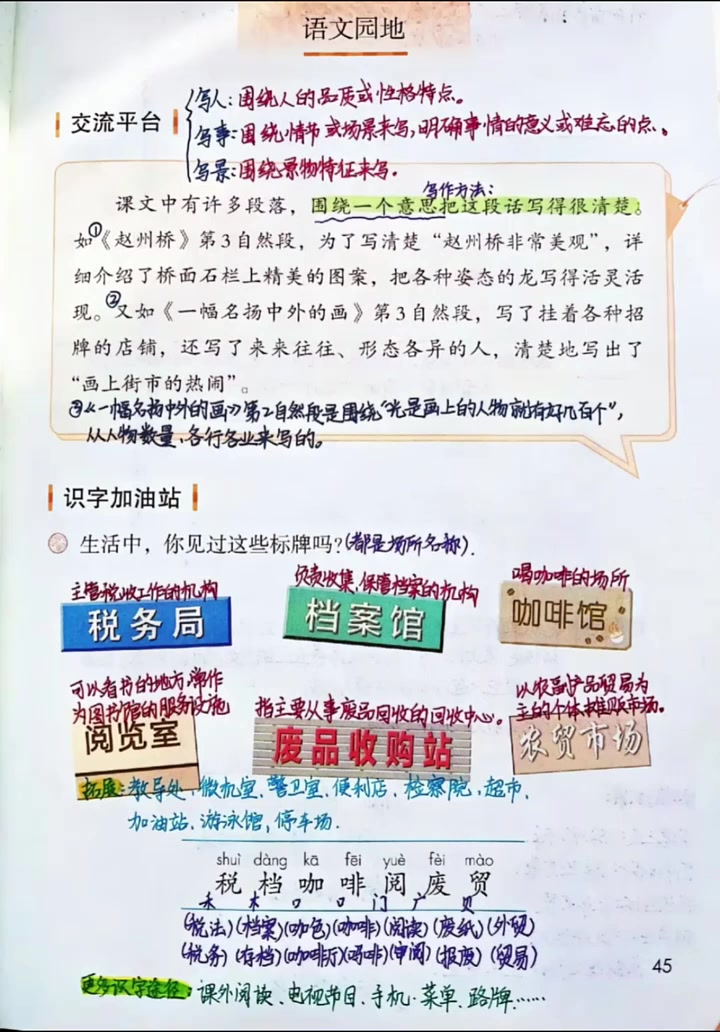 语文园地
写人：围绕人的品质或性格特点。
交流平台
写事：围绕情节或场景来写，明确事情的意义或难忘的点。
写景：围绕景物特征来写。
写作方法：
课文中有许多段落，围绕一个意思把这段话写得很清楚。
如①《赵州桥》第3自然段，为了写清楚“赵州桥非常美观”，详
细介绍了桥面石栏上精美的图案，把各种姿态的龙写得活灵活
现。②又如《一幅名扬中外的画》第3自然段，写了挂着各种招
牌的店铺，还写了来来往往、形态各异的人，清楚地写出了
“画上街市的热闹”。
③《一幅名扬中外的画》第2自然段是围绕“光是画上的人物就有好几百个”，
从人物数量、各行各业来写的。
识字加油站
生活中，你见过这些标牌吗？(都是场所名称).
主管税收工作的机构 负责收集、保管档案的机构 喝咖啡的场所
税务局 档案馆 咖啡馆
可以看书的地方，常作
为图书馆的服务设施
指主要从事废品回收的回收中心。
以农副产品贸易为
主的个体摊贩市场。
阅览室 废品收购站 农贸市场
拓展：教导处、微机室、警卫室、便利店、检察院、超市、
加油站、游泳馆、停车场.
shuì dàng kā fēi yuè fèi mào
税 档 咖 啡 阅 废 贸
禾 木 口 口 门 广 贝
(税法)(档案)(咖色)(咖啡)(阅读)(废纸)(外贸)
(税务)(存档)(咖啡厅)(吗啡)(审阅)(报废)(贸易)
45
更多识字途径：课外阅读、电视节目、手机、菜单、路牌……